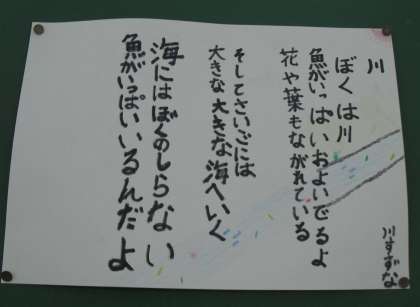 川
ぼくは川
魚がいっぱいおよいでるよ
花や葉もながれている
そしてさいごには
大きな大きな海へいく
海にはぼくのしらない
魚がいっぱいいるんだよ
川すずな